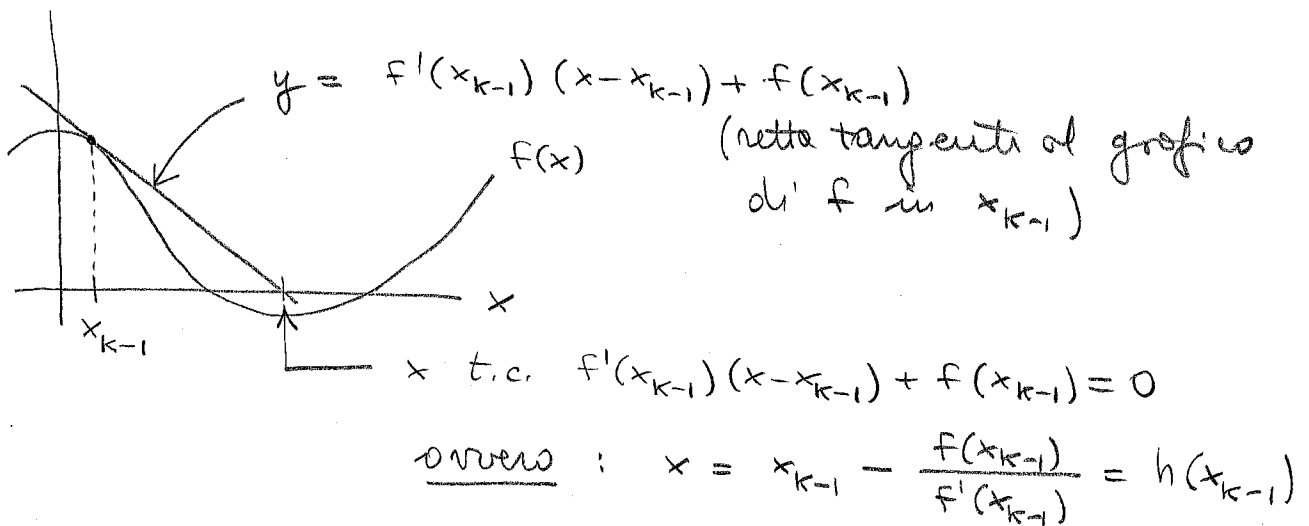 y = f'(x_{k-1}) (x-x_{k-1}) + f(x_{k-1})
(retta tangente al grafico
di f in x_{k-1})
f(x)
x
x_{k-1}
x t.c. f'(x_{k-1}) (x-x_{k-1}) + f(x_{k-1}) = 0
ovvero : x = x_{k-1} - \frac{f(x_{k-1})}{f'(x_{k-1})} = h(x_{k-1})